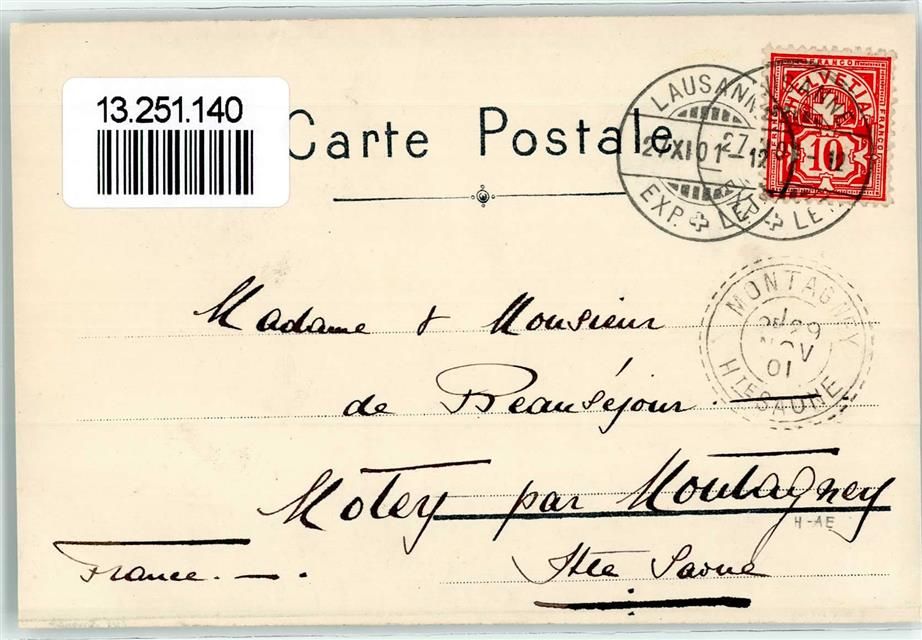 13.251.140
Carte Postale
FRANCO
HELVETIA
10
LAUSANNE
27 XI 01 – 12
EXP. LETT.
MONTAGNEY
29
NOV
01
HTE SAONE
Madame & Monsieur
de Beauséjour
Motey par Montagney
H-AE
Hte Saone
France. —.